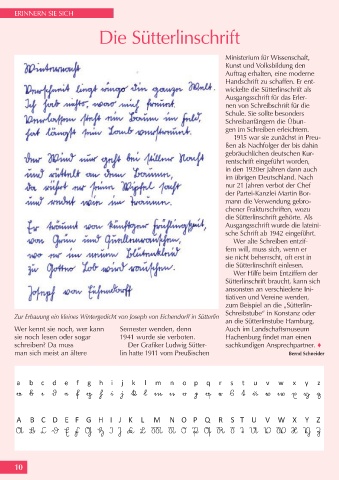 ERINNERN SIE SICH
Die Sütterlinschrift
Winternacht
Verschneit liegt rings die ganze Welt.
Ich hab' nichts, was mich freuet.
Verlassen steht ein Baum im Feld,
hat längst sein Laub verstreuet.
Der Wind nur geht bei stiller Nacht
und rüttelt an dem Baume,
da rührt er seine Wipfel sacht
und redet wie im Traume.
Er träumt von künftiger Frühlingszeit,
von Grün und Quellenrauschen,
wo er im neuen Blütenkleid
zu Gottes Lob wird rauschen.
Joseph von Eichendorff
Zur Erbauung ein kleines Wintergedicht von Joseph von Eichendorff in Sütterlin
Wer kennt sie noch, wer kann
sie noch lesen oder sogar
schreiben? Da muss
man sich meist an ältere
Semester wenden, denn
1941 wurde sie verboten.
Der Grafiker Ludwig Sütter-
lin hatte 1911 vom Preußischen
Ministerium für Wissenschaft,
Kunst und Volksbildung den
Auftrag erhalten, eine moderne
Handschrift zu schaffen. Er ent-
wickelte die Sütterlinschrift als
Ausgangsschrift für das Erler-
nen von Schreibschrift für die
Schule. Sie sollte besonders
Schreibanfängern die Übun-
gen im Schreiben erleichtern.
1915 war sie zunächst in Preu-
ßen als Nachfolger der bis dahin
gebräuchlichen deutschen Kur-
rentschrift eingeführt worden,
in den 1920er Jahren dann auch
im übrigen Deutschland. Nach
nur 21 Jahren verbot der Chef
der Partei-Kanzlei Martin Bor-
mann die Verwendung gebro-
chener Frakturschriften, wozu
die Sütterlinschrift gehörte. Als
Ausgangsschrift wurde die lateini-
sche Schrift ab 1942 eingeführt.
Wer alte Schreiben entzif-
fern will, muss sich, wenn er
sie nicht beherrscht, oft erst in
die Sütterlinschrift einlesen.
Wer Hilfe beim Entziffern der
Sütterlinschrift braucht, kann sich
ansonsten an verschiedene Ini-
tiativen und Vereine wenden,
zum Beispiel an die „Sütterlin-
Schreibstube“ in Konstanz oder
an die Sütterlinstube Hamburg.
Auch im Landschaftsmuseum
Hachenburg findet man einen
sachkundigen Ansprechpartner. ♦
Bernd Schneider
a b c d e f g h i j k l m n o p q r s t u v w x y z
a b c d e f g h i j k l m n o p q r s t u v w x y z
A B C D E F G H I J K L M N O P Q R S T U V W X Y Z
A B C D E F G H I J K L M N O P Q R S T U V W X Y Z
10